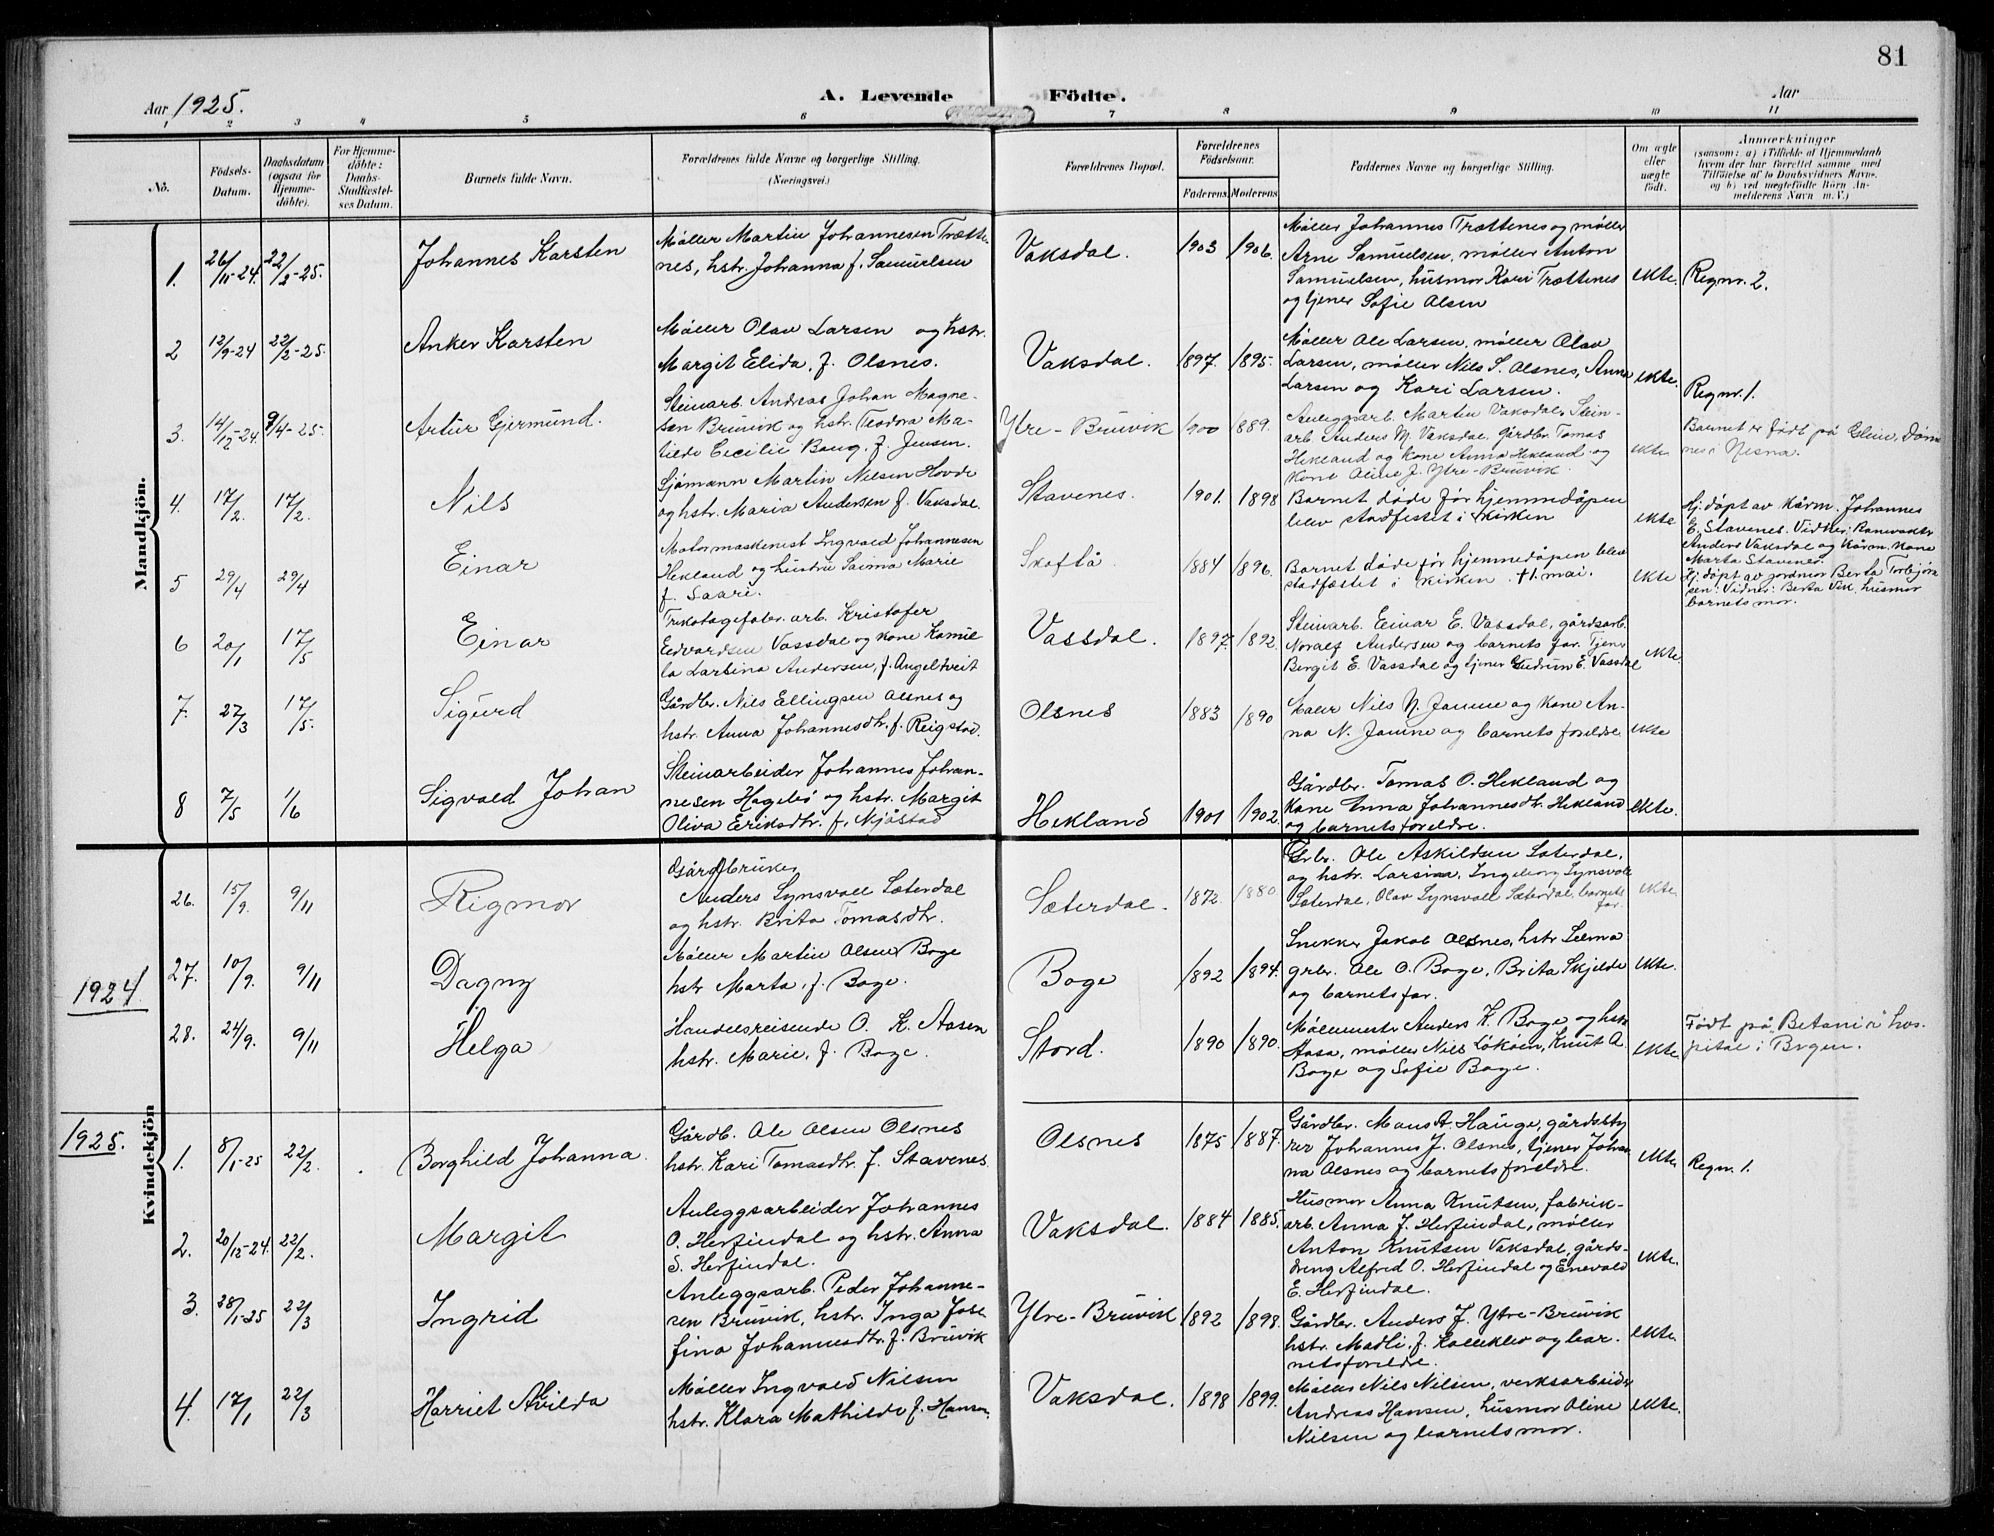 81
Aar 1925.
A. Levende Födte.
Aar
1 2 3 4 5 6 7 8 9 10 11
No.
Födsels-Datum.
Daabsdatum (ogsaa for Hjemmedöbte).
For Hjemmedöbte: Daabs-Stadfæstelses Datum.
Barnets fulde Navn.
Forældrenes fulde Navne og borgerlige Stilling.
(Næringsvei.)
Forældrenes Bopæl.
Forældrenes Födselsaar.
Faderens. Moderens.
Faddernes Navne og borgerlige Stilling.
Om ægte eller uægte født.
Anmærkninger
(saasom: a) i Tilfælde af Hjemmedaab
hvem der har forrettet samme, med
Tilföielse af to Daabsvidners Navne.
og b) ved uægtefödte Börn An-
melderens Navn m.V.)
Mandkjön.
1. 26/11-24. 22/2-25. Johannes Karsten
Møller Martin Johannesen Trætte-
nes, hstr. Johanna f. Samuelsen
Vaksdal. 1903 1906.
Møller Johannes Trættenes og møller
Arne Samuelsen, møller Anton
Samuelsen, husmor Kari Trættenes
og tjener Sofie Olsen
ekte. Regnr. 2.
2 12/9-24 22/2-25. Anker Karsten
Møller Olav Larsen og hstr.
Margit Elida, f. Olsnes.
Vaksdal. 1897. 1895.
Møller Ole Larsen, møller Olav
Larsen, møller Nils S. Olsnes, Anna
Larsen og Kari Larsen.
ekte. Regnr. 1.
3. 14/12-24. 9/4-25. Artur Gjermund.
Steinarb. Andreas Johan Magne-
sen Bruvik og hstr. Teodora Ma-
tilde Cecilie Baug, f. Jensen.
Ytre-Bruvik 1900 1889.
Anleggsarb. Martin Vaksdal, Stein-
arb. Anders M. Vaksdal, gårdbr. Tomas
Hekland og kone Anna Hekland og
Kone Oline J. Ytre-Bruvik.
ekte
Barnet er født på Glein, Døn-
nes i Nesna.
4. 17/2. 17/2. Nils
Sjømann Martin Nilsen Hovde
og hstr. Maria Andersen f. Vaksdal.
Stavenes. 1901. 1898
Barnet døde før hjemmedåpen
blev stadfestet i kirken
ekte
Hj. døpt av kårm. Johannes
E. Stavenes. Vidner: Banevokter
Anders Vaksdal og kårm. kone
Marta Stavenes.
5 29/4 29/4 Einar
Motormaskenist Ingvald Johannesen
Hekland og hustru Saima Marie
f. Saari.
Skoftå 1884 1896.
Barnet døde før hjemmedåpen blev
stadfæstet i kirken. † 1. mai.
ekte
Hj. døpt av jordmor Berta Torbjørn-
sen: Vidnes: Berta Vik, husmor
barnets mor.
6 20/1 17/5 Einar
Trikotagefabr. arb. Kristofer
Edvardsen Vassdal og kone Kamil-
la Larsina Andersen, f. Angeltveit
Vassdal. 1897. 1892.
Steinarb. Einar E. Vassdal, gårdsarb.
Noralf Andersen og barnets far. Tjener
Bergit E. Vassdal og tjener Gudrun E. Vassdal
ekte.
7. 27/3 17/5. Sigurd
Gårdbr. Nils Ellingsen Olsnes og
hstr. Anna Johannesdtr. f. Reigstad.
Olsnes 1883 1890
Maler Nils N. Jamne og kone An-
na N. Jamne og barnets foreldre.
ekte
8 7/5 1/6 Sigvald Johan
Steinarbeider Johannes Johan-
nesen Hagebø og hstr. Margit
Oliva Eriksdtr. f. Mjåstad
Hekland 1901 1902.
Gårdbr. Tomas O. Hekland og
kone Anna Johannesdtr. Hekland
og barnets foreldre.
ekte.
Kvindekjön
1924.
26. 15/9. 9/11 Rigmor
Gårdbruker
Anders Lynsvoll Sæterdal
og hstr. Brita Tomasdtr.
Sæterdal. 1872. 1880
Grbr. Ole Askildsen Sæterdal,
og hstr. Larsina, Ingeborg Lynsvoll
Sæterdal, Olav Lynsvoll Sæterdal, barnets
far.
ekte.
27. 10/9. 9/11 Dagny
Møller Martin Olsen Boge
hstr. Marta, f. Boge.
Boge 1892 1894.
Snekker Jakob Olsnes, hstr. Selma
grbr. Ole O. Boge, Brita Skjelde
og barnets far.
ekte.
28. 24/9. 9/11 Helga
Handelsreisende O. K. Aasen
hstr. Marie, f. Boge.
Stord. 1890 1890.
Møllemestr. Anders K. Boge og hstr.
Aasa, møller Nils Løkøen, Knut A.
Boge og Sofie Boge.
ekte.
Født på "Betania" hos-
pital i Brgen.
1925.
1. 8/1-25 22/2. Borghild Johanna.
Gårdb. Ole Olsen Olsnes
hstr. Kari Tomasdtr. f. Stavenes.
Olsnes 1875 1887.
Gårdbr. Mons A. Hauge, gårdsbty
rer Johannes J. Olsnes, tjener Johan-
na Olsnes og barnets foreldre.
ekte. Regnr. 1.
2. 20/12-24. 22/2. Margit
Anleggsarbeider Johannes
O. Herfindal og hstr. Anna
S. Herfindal.
Vaksdal. 1884 1885.
Husmor Anna Knutsen, fabrik-
arb. Anna J. Herfindal, møller
Anton Knutsen Vaksdal, gårds-
dreng Alfred O. Herfindal og Enevald
E. Herfindal.
ekte.
3. 28/1-25 22/3 Ingrid
Anleggsarb. Peder Johanne-
sen Bruvik, hstr. Inga Jose
fina Johannesdtr. f. Bruvik
Ytre-Bruvik 1892 1898.
Gårdbr. Anders J. Ytre-Bruvik
hstr. Madli, f. Kallekleiv og bar-
nets foreldre.
ekte.
4. 17/1 22/3 Harriet Alvilda
Møller Ingvald Nilsen
hstr. Klara Mathilde f. Hansen.
Vaksdal. 1898 1899.
Møller Nils Nilsen, verksarbeider
Andreas Hansen, husmor Oline
Nilsen og barnets mor.
ekte.